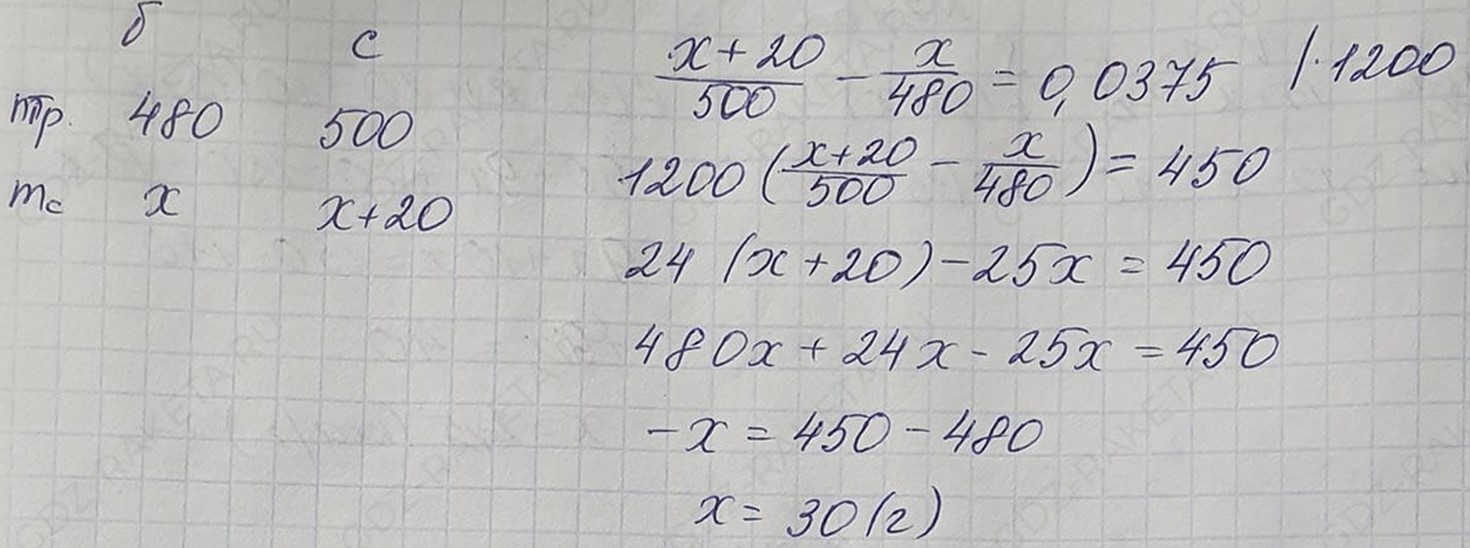 б с
mр. 480 500
mс x x+20
(x+20)/500 - x/480 = 0,0375 |·1200
1200((x+20)/500 - x/480) = 450
24 (x+20)-25x = 450
480x+24x-25x=450
-x=450-480
x=30(г)
GDZ-RAKETA.RU